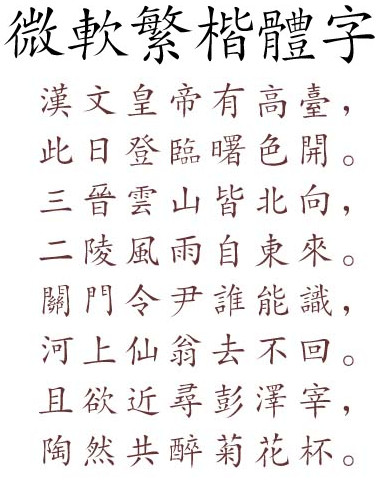 微軟繁楷體字
漢文皇帝有高臺，
此日登臨曙色開。
三晉雲山皆北向，
二陵風雨自東來。
關門令尹誰能識，
河上仙翁去不回。
且欲近尋彭澤宰，
陶然共醉菊花杯。